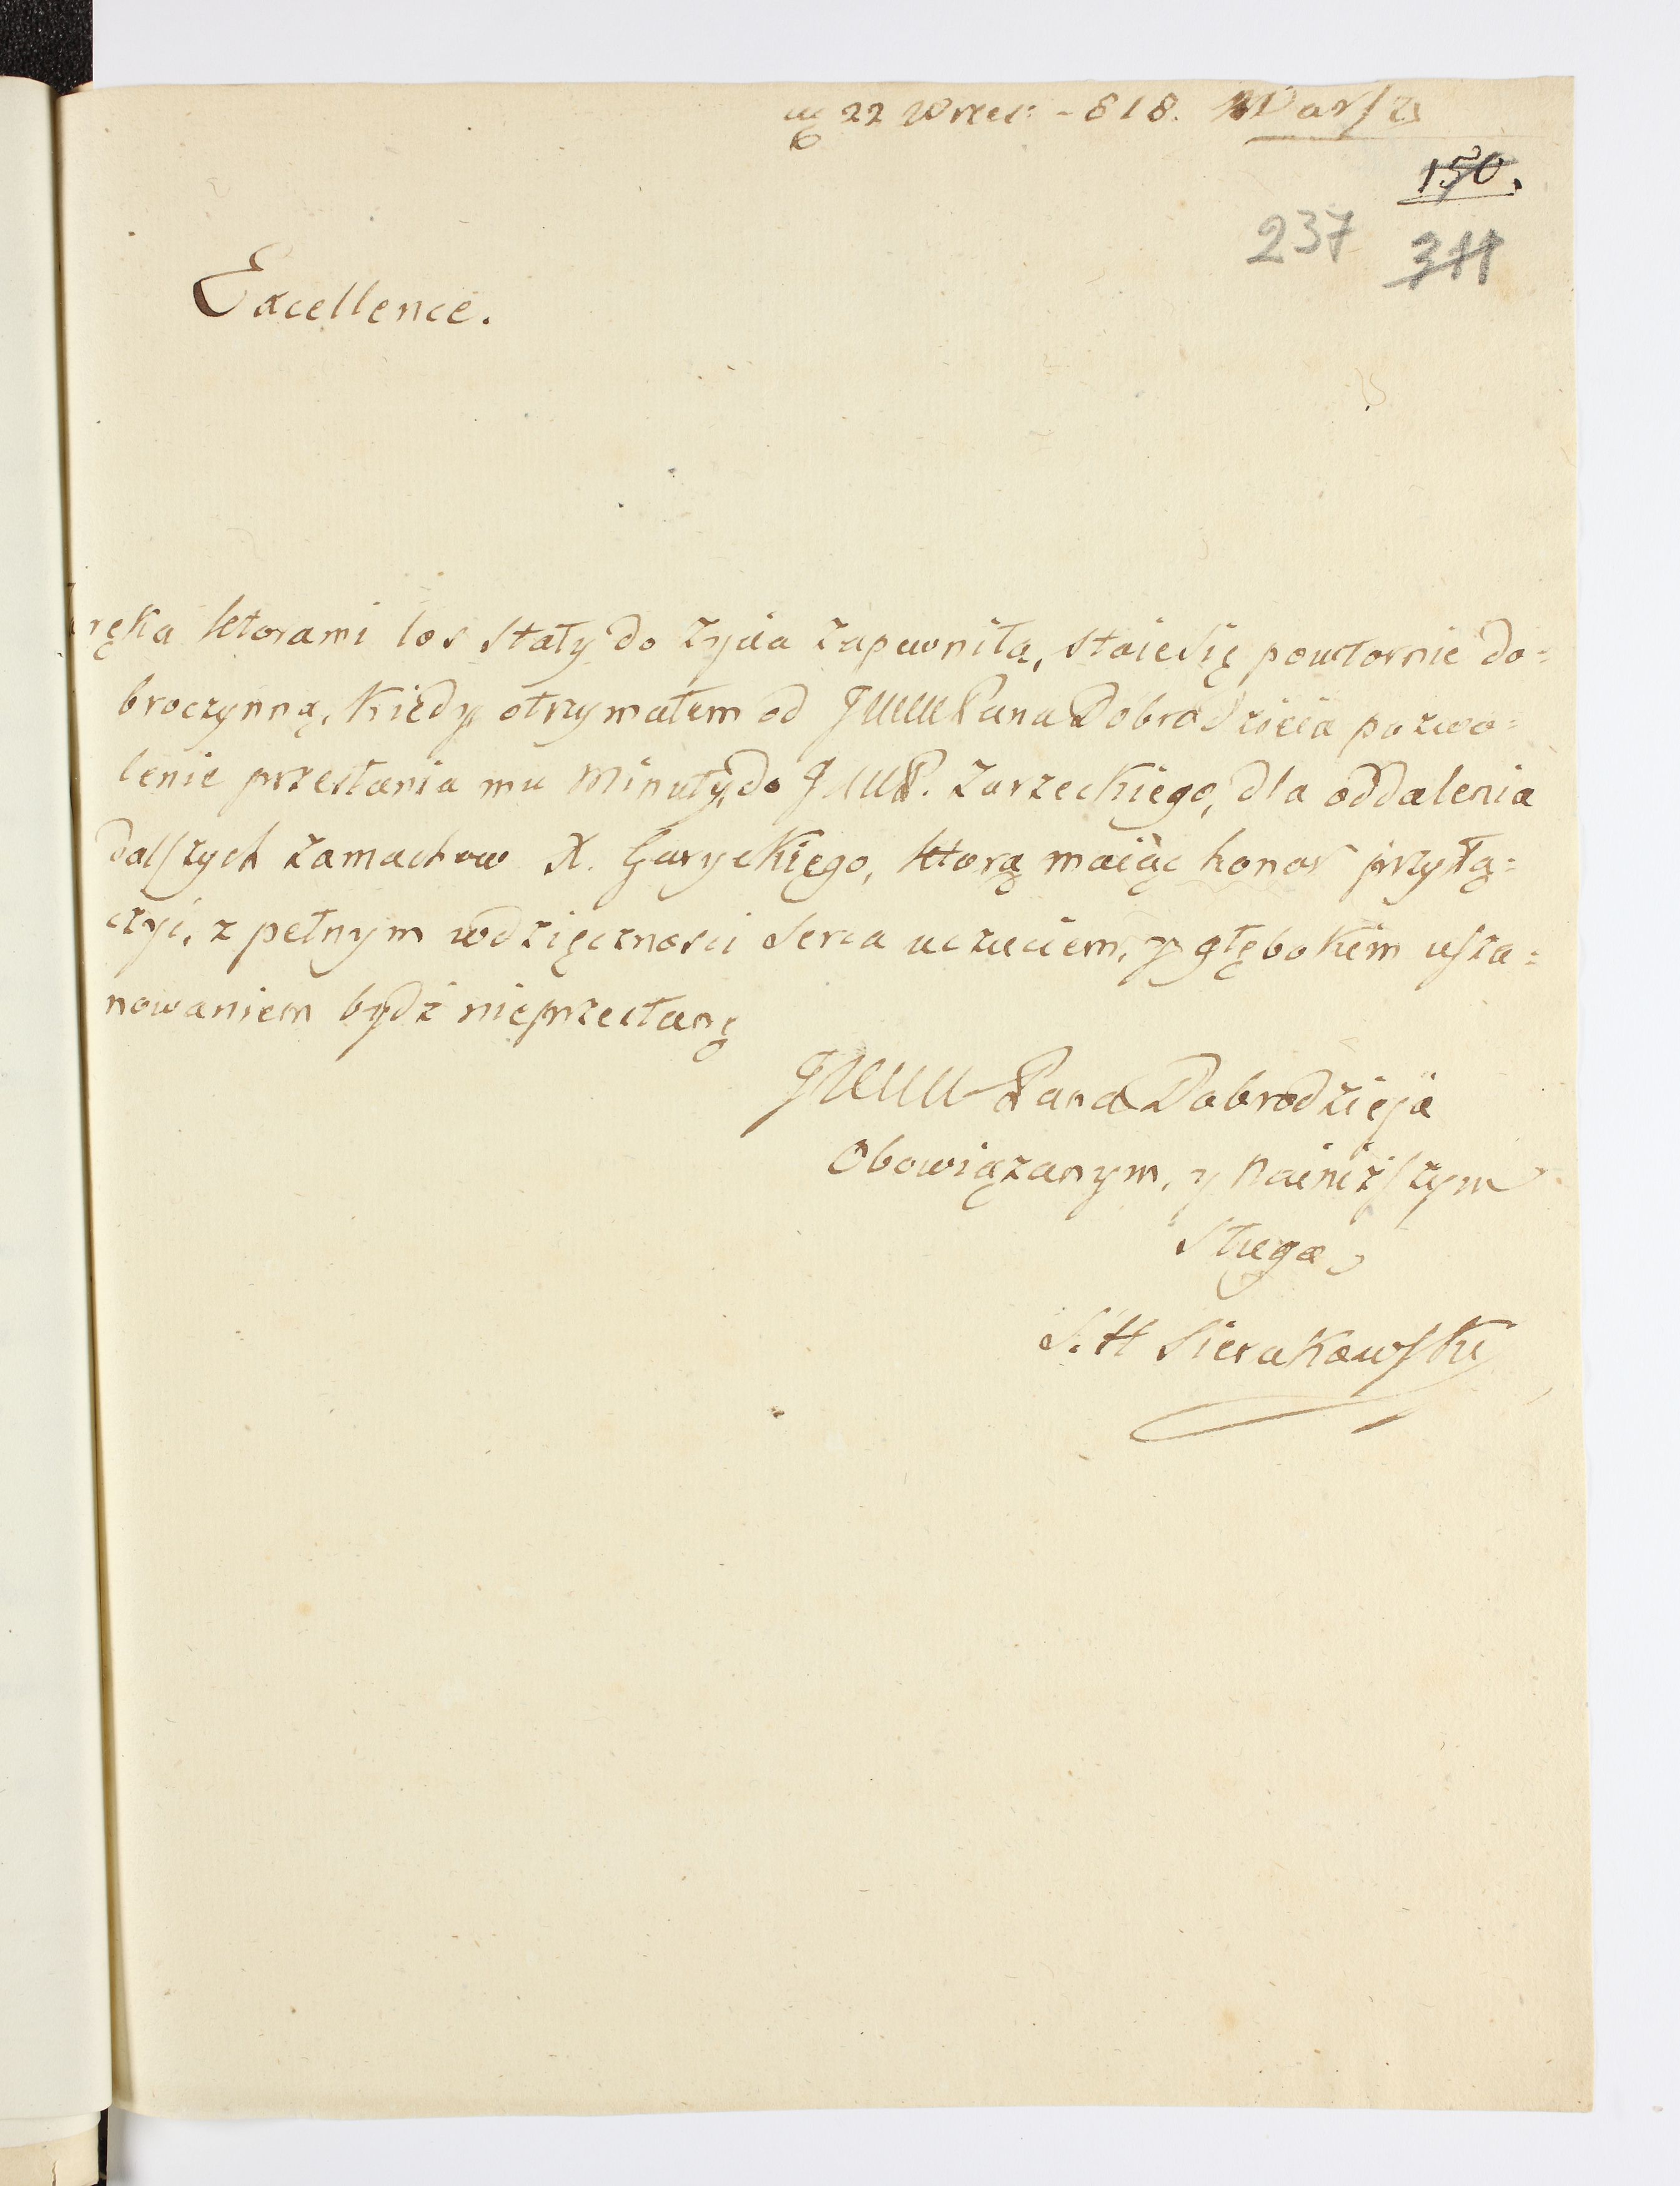 22 Wrześ: -818. Warsz
150.
237 311
Excellence.
ręka ktorami los stały do życia zapewniła, staie się powtornie do=
broczynną, Kiedy otrzymałem od JWWPana Dobrodzieia pozwo=
lenie przesłania mu Minuty, do JWWP. Zarzeckiego, dla oddalenia
dalszych zamachow X. Garyckiego, ktorą maiąc honor przyłą=
czyć, z pełnym wdzięcznosci serca uczuciem, y głębokim usza=
nowaniem bydź nieprzestanę
JWW Pana Dobrodzieja
Obowiązanym, y nainiższym
Sługą
S. H Sierakowski